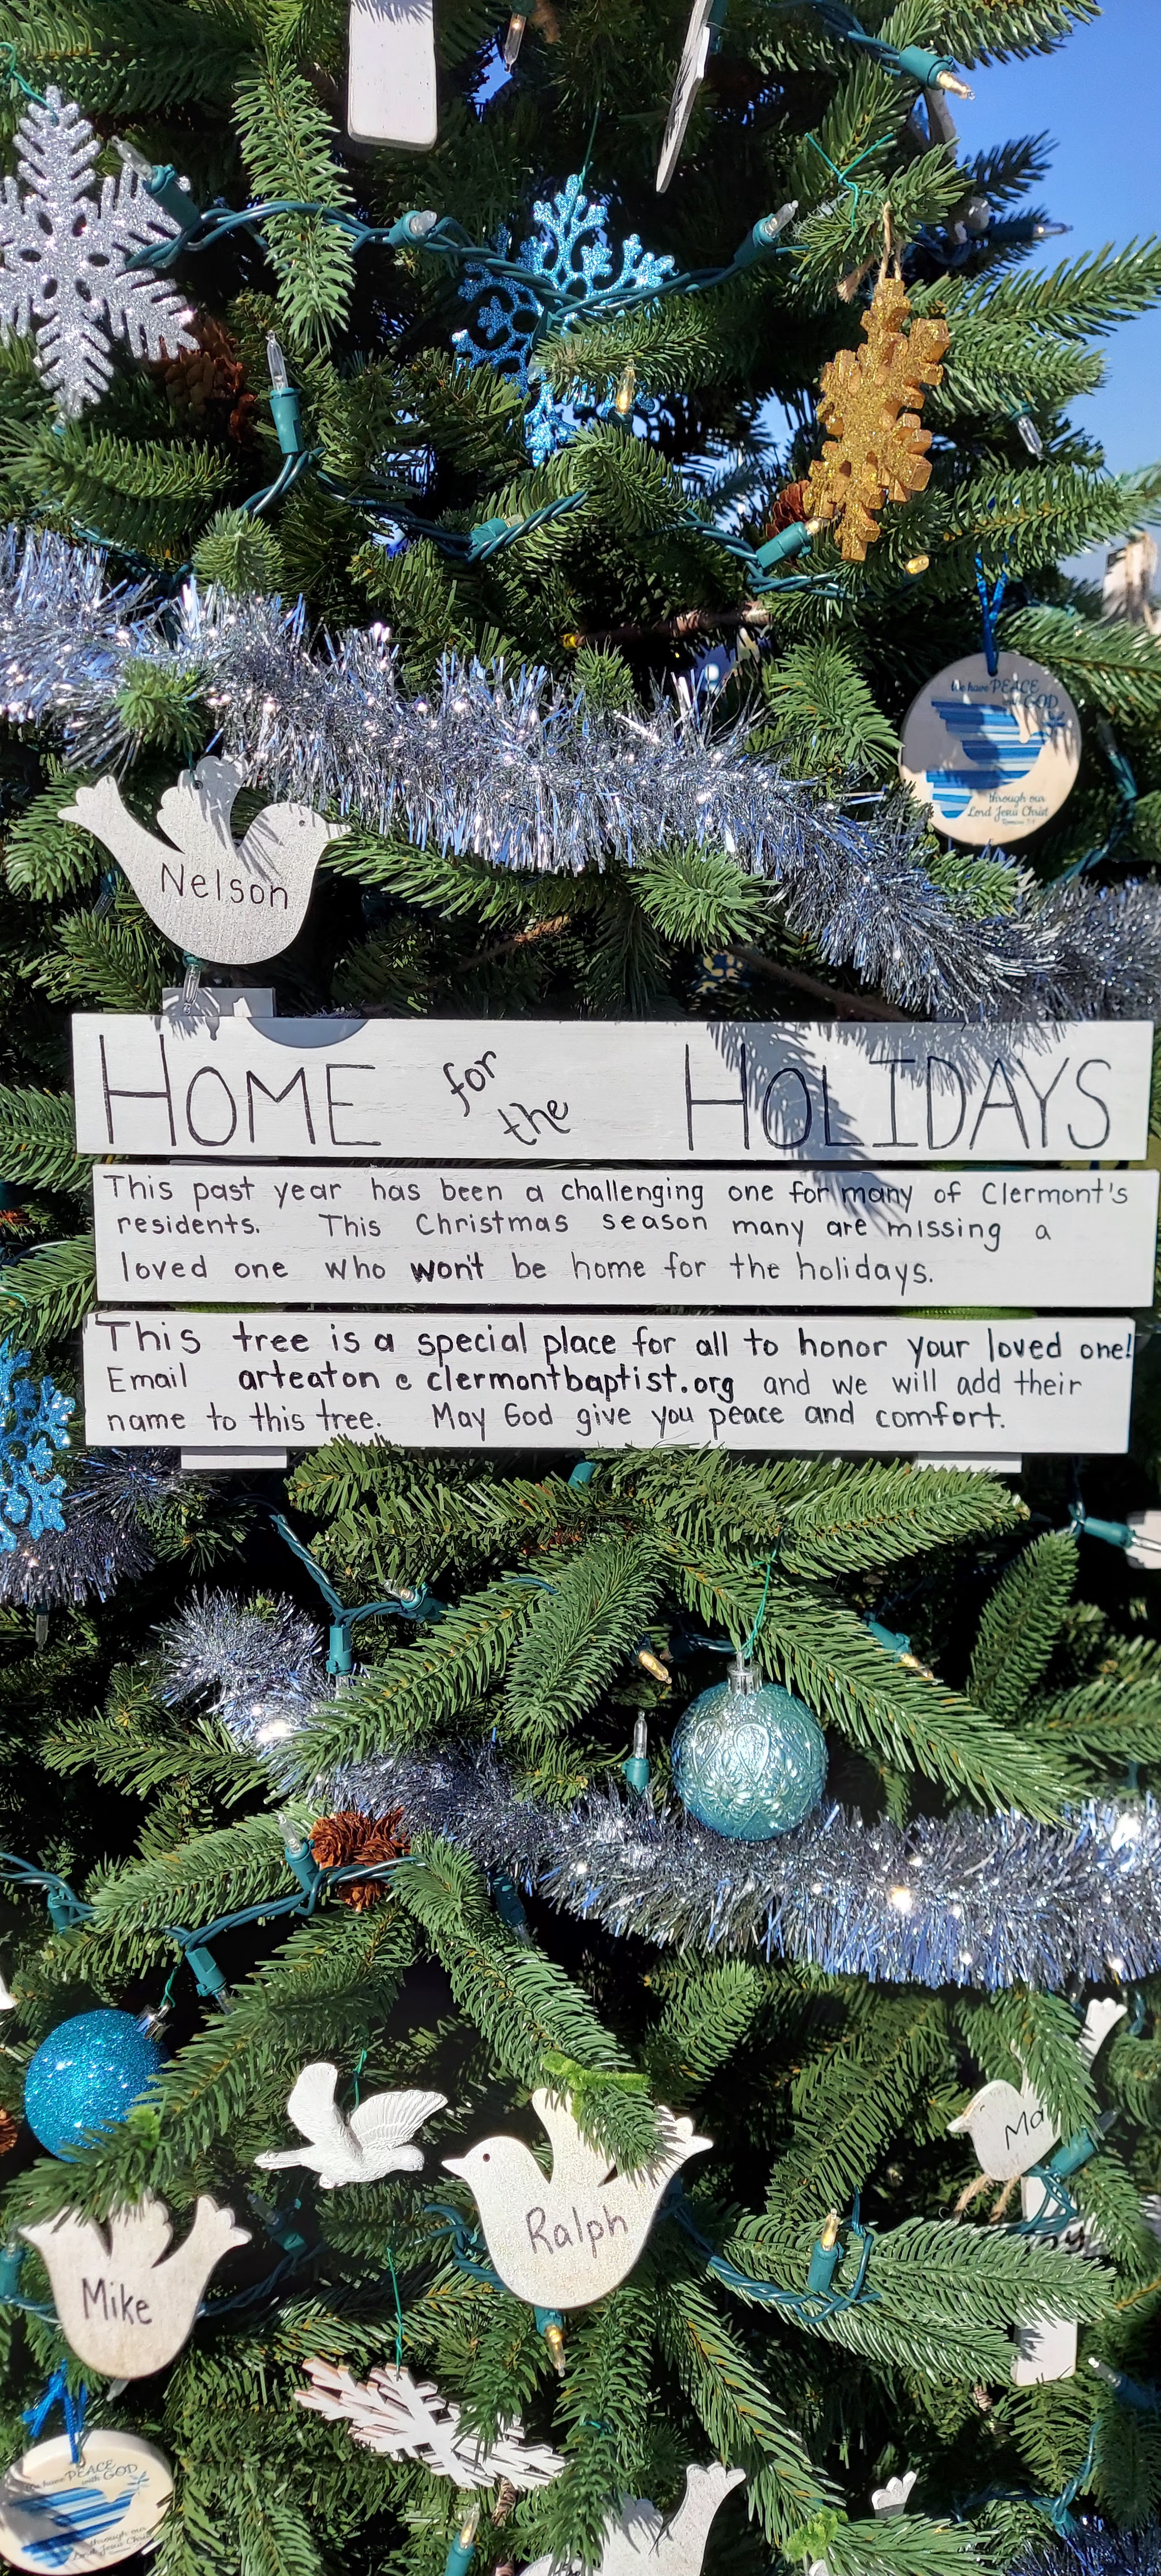 We have PEACE
with GOD
through our
Lord Jesus Christ
Romans 5:1
Nelson
HOME for the HOLIDAYS
This past year has been a challenging one for many of Clermont's
residents. This Christmas season many are missing a
loved one who won't be home for the holidays.
This tree is a special place for all to honor your loved one!
Email arteaton @ clermontbaptist.org and we will add their
name to this tree. May God give you peace and comfort.
Ralph
Mike
We have PEACE
with GOD
through our
Lord Jesus Christ